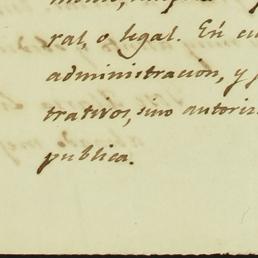 ral, o legal. En
administracion, y
trativos, sino autori
publica.